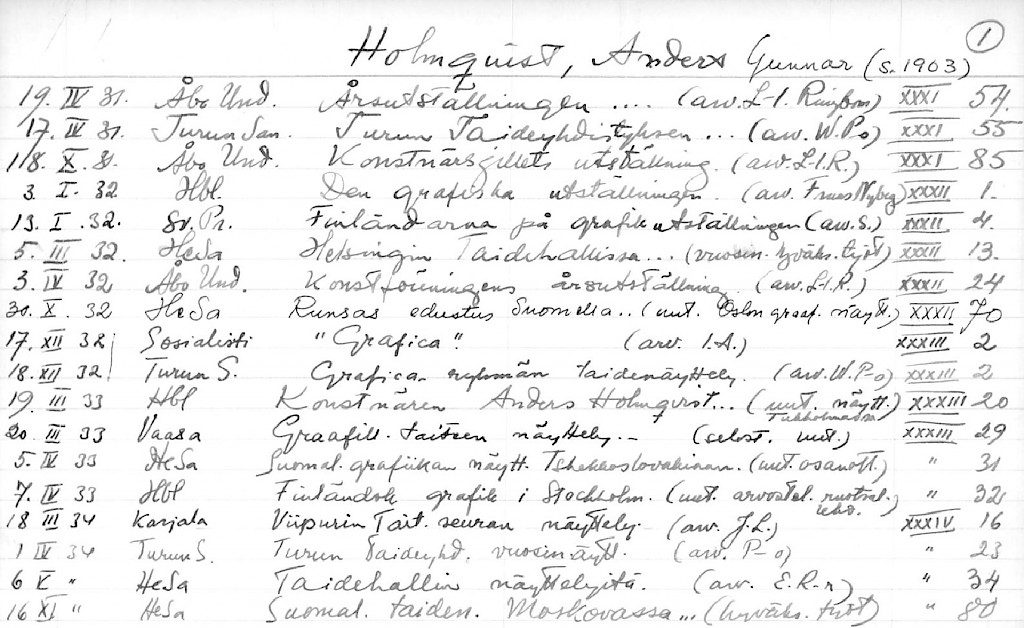 1
Holmquist, Anders Gunnar (s. 1903)
19. IV 31. Åbo Und. Årsutställningen .... (arv. L-I. Ringbom) XXXI 54.
17. IV 31. Turun San. Turun Taideyhdistyksen ... (arv. W. P-o) XXXI 55
18. X. 31. Åbo Und. Konstnärsgillets utställning. (arv. L-I.R.) XXXI 85
3. I. 32. Hbl. Den grafiska utställningen. (arv. Nyberg) XXXII 1.
13. I. 32. Sv. Pr. Finländarna på grafikutställningen (arv. S.) XXXII 4.
5. III 32. HeSa Helsingin Taidehallissa... (vuosin. hyväks. työt) XXXII 13.
3. IV 32 Åbo Und. Konstföreningens årsutställning. (arv. L-I.R.) XXXII 24
30. X. 32 HeSa Runsas edustus Suomella.. (uut. Oslon graaf. näytt.) XXXII 70
17. XII 32 Sosialisti "Grafica". (arv. I.A.) XXXIII 2
18. XII 32 Turun S. Grafica-ryhmän taidenäyttely. (arv. W. P-o) XXXIII 2
19. III 33 Hbl Konstnären Anders Holmqvist... (uut. näytt. Tukholmassa) XXXIII 20
20. III 33 Vaasa Graafill. taiteen näyttely.- (selost. uut.) XXXIII 29
5. IV 33 HeSa Suomal. grafiikan näytt. Tshekkoslovakiaan. (uut. osanott.) " 31
7. IV 33 Hbl Finländsk grafik i Stockholm. (uut. arvostel. ruotsal. lehd.) " 32
18 III 34 Karjala Viipurin Tait. seuran näyttely. (arv. J.L.) XXXIV 16
1 IV 34 Turun S. Turun Taideyhd. vuosinäytt. (arv. P-o) " 23
6 V " HeSa Taidehallin näyttelyitä. (arv. E.R-r) " 34
16 XI " HeSa Suomal. taiden. Moskovassa... (hyväks. työt) " 80